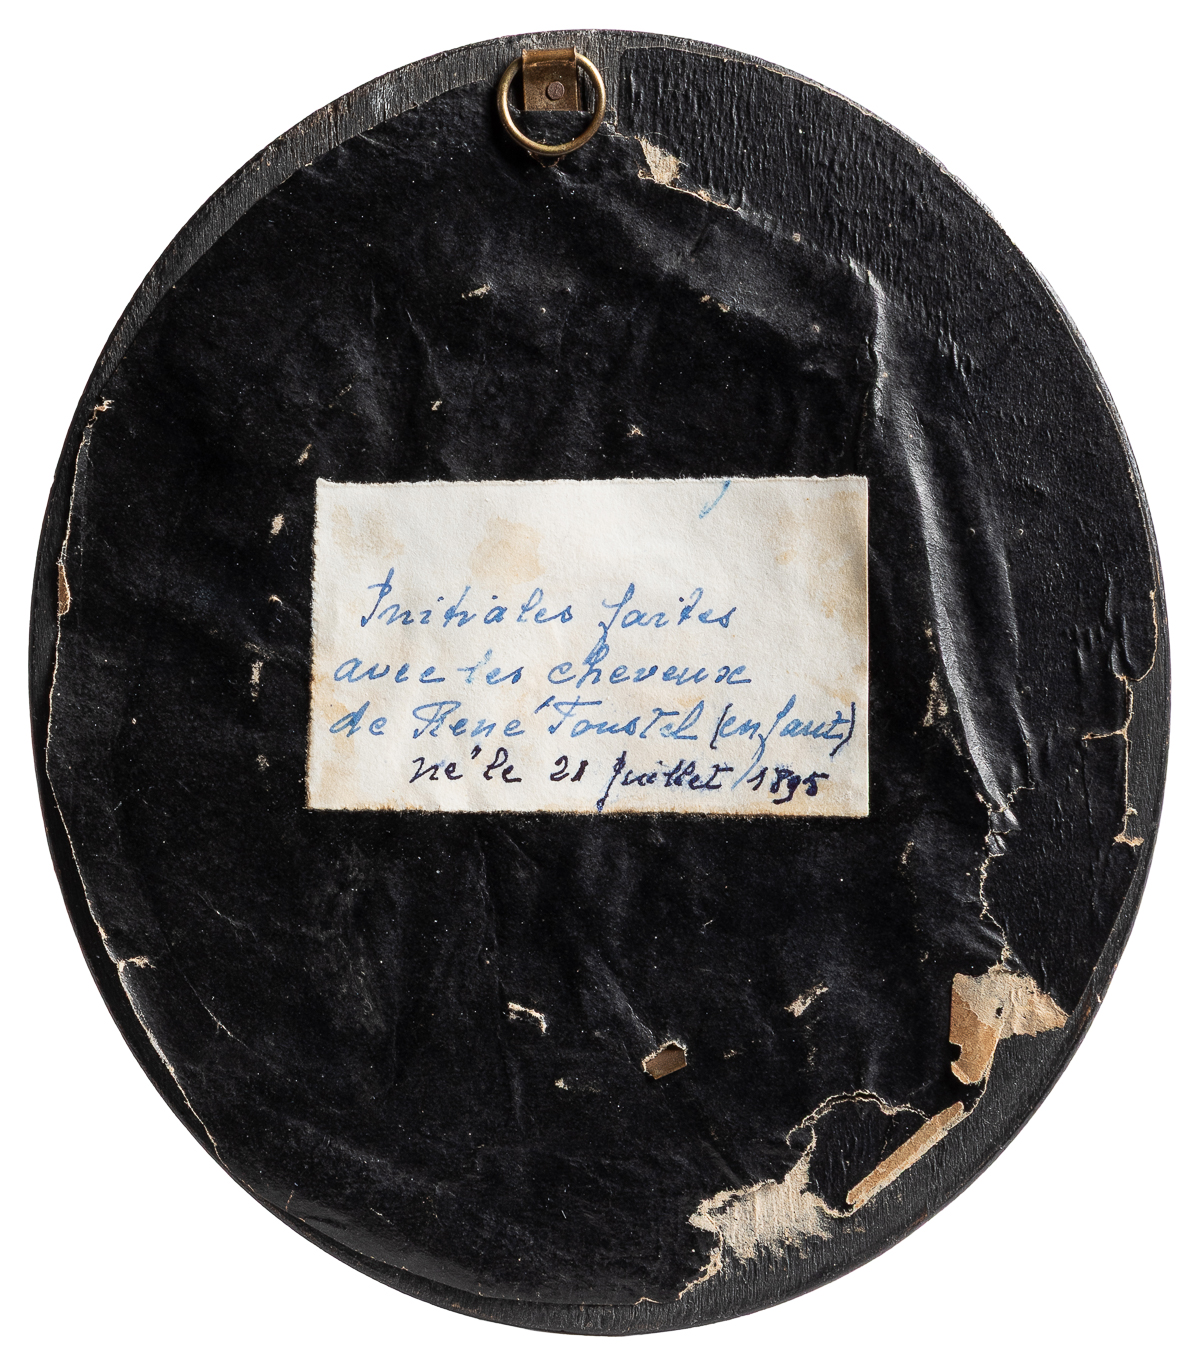 Initiales faites
avec les cheveux
de René Toustel (enfant)
né le 21 Juillet 1895